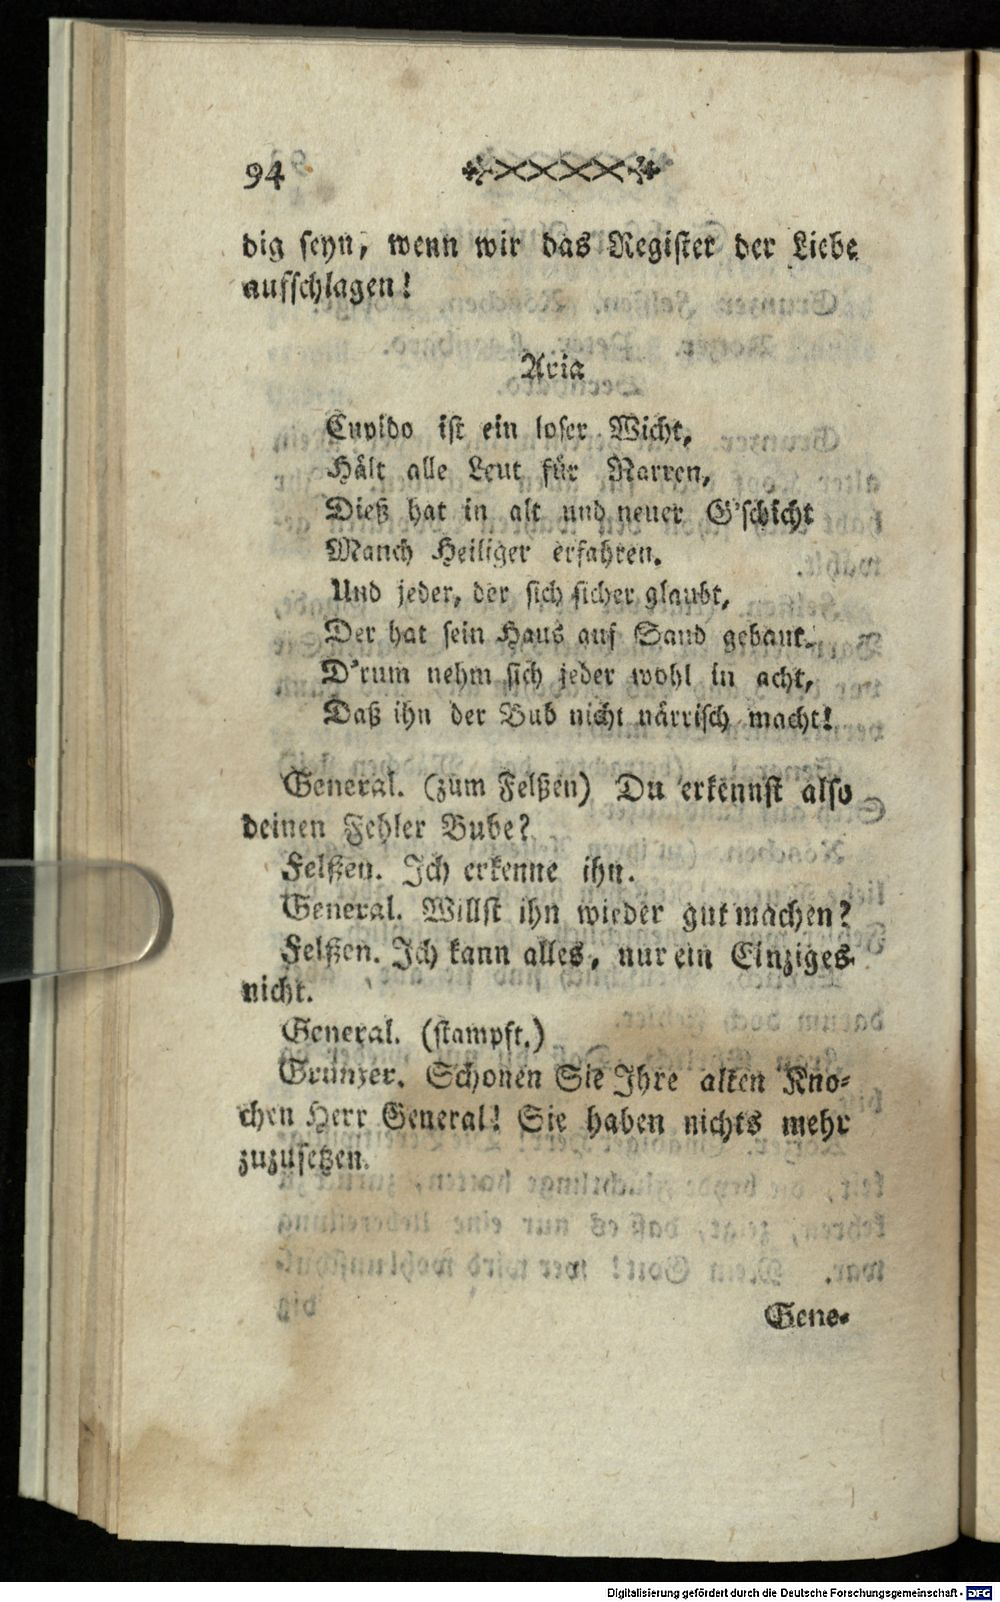 94
dig seyn, wenn wir das Register der Liebe
aufschlagen!
Aria
Cupido ist ein loser Wicht,
Hält alle Leut für Narren,
Dieß hat in alt und neuer G'schicht
Manch Heiliger erfahren.
Und jeder, der sich sicher glaubt,
Der hat sein Haus auf Sand gebaut.
D'rum nehm sich jeder wohl in acht,
Daß ihn der Bub nicht närrisch macht!
General. (zum Felßen) Du erkennst also
deinen Fehler Bube?
Felßen. Ich erkenne ihn.
General. Willst ihn wieder gut machen?
Felßen. Ich kann alles, nur ein Einziges
nicht.
General. (stampft.)
Grünzer. Schonen Sie Ihre alten Kno-
chen Herr General! Sie haben nichts mehr
zuzusetzen.
Gene-
Digitalisierung gefördert durch die Deutsche Forschungsgemeinschaft - DFG